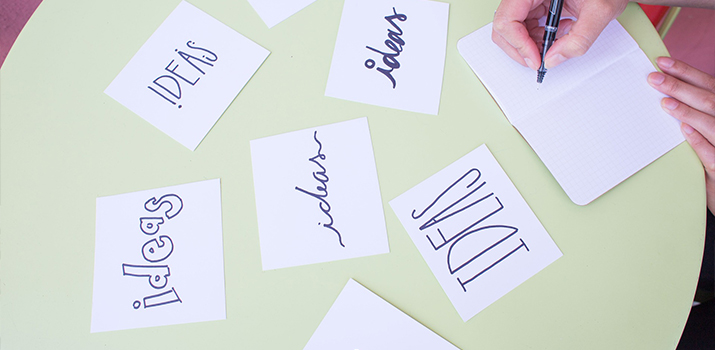 IDEAS
ideas
ideas
ideas
IDEAS